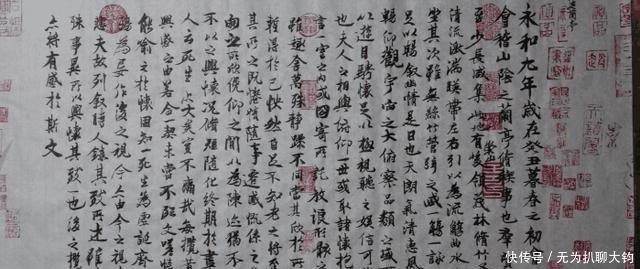 永和九年歲在癸丑暮春之初
會稽山陰之蘭亭脩稧事也羣
至少長咸集此地有峻領茂林脩竹
清流激湍暎帶左右引以為流觴曲水
坐其次雖無絲竹管弦之盛一觴一詠
足以暢敘幽情是日也天朗氣清惠風
暢仰觀宇宙之大俯察品類之盛
以遊目騁懷足以極視聽之娛信可
也夫人之相與俯仰一世或取諸懷抱
言一室之內或因寄所託放浪形骸
雖趣舍萬殊靜躁不同當其欣於所
暫得於己怏然自足不知老之將至
其所之既惓情隨事遷感慨係之
向之所欣俛仰之閒以為陳迹猶不
不以之興懷況脩短隨化終期於盡
人云死生亦大矣豈不痛哉每攬昔
興感之由若合一契未嘗不臨文嗟悼
能喻之於懷固知一死生為虛誕齊
殤為妄作後之視今亦由今之視
悲夫故列敘時人錄其所述雖
殊事異所以興懷其致一也後之攬
亦將有感於斯文
快传号/无为扒聊大钧